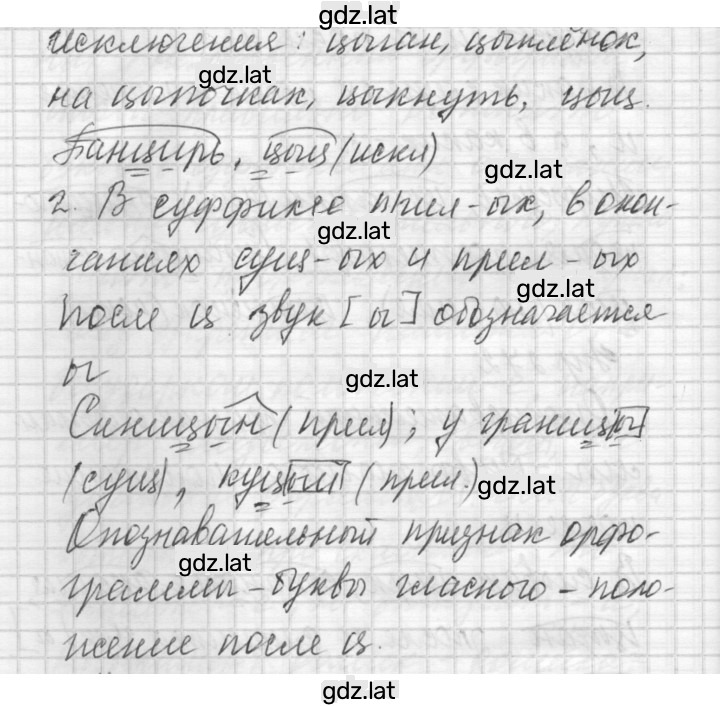 gdz.lat
исключения: цыган, цыплёнок,
gdz.lat
на цыпочках, цыкнуть, цыц.
Панцирь, цыц (искл)
gdz.lat
2. В суффиксе прил-ых, в окон-
gdz.lat
чаниях сущ-ых и прил-ых
gdz.lat
после ц звук [ы] обозначается
ы
gdz.lat
Синицын (прил); у границы
(сущ), куцый (прил.)
gdz.lat
Опознавательный признак орфо-
gdz.lat
граммы-буквы гласного - поло-
жение после ц.
gdz.lat